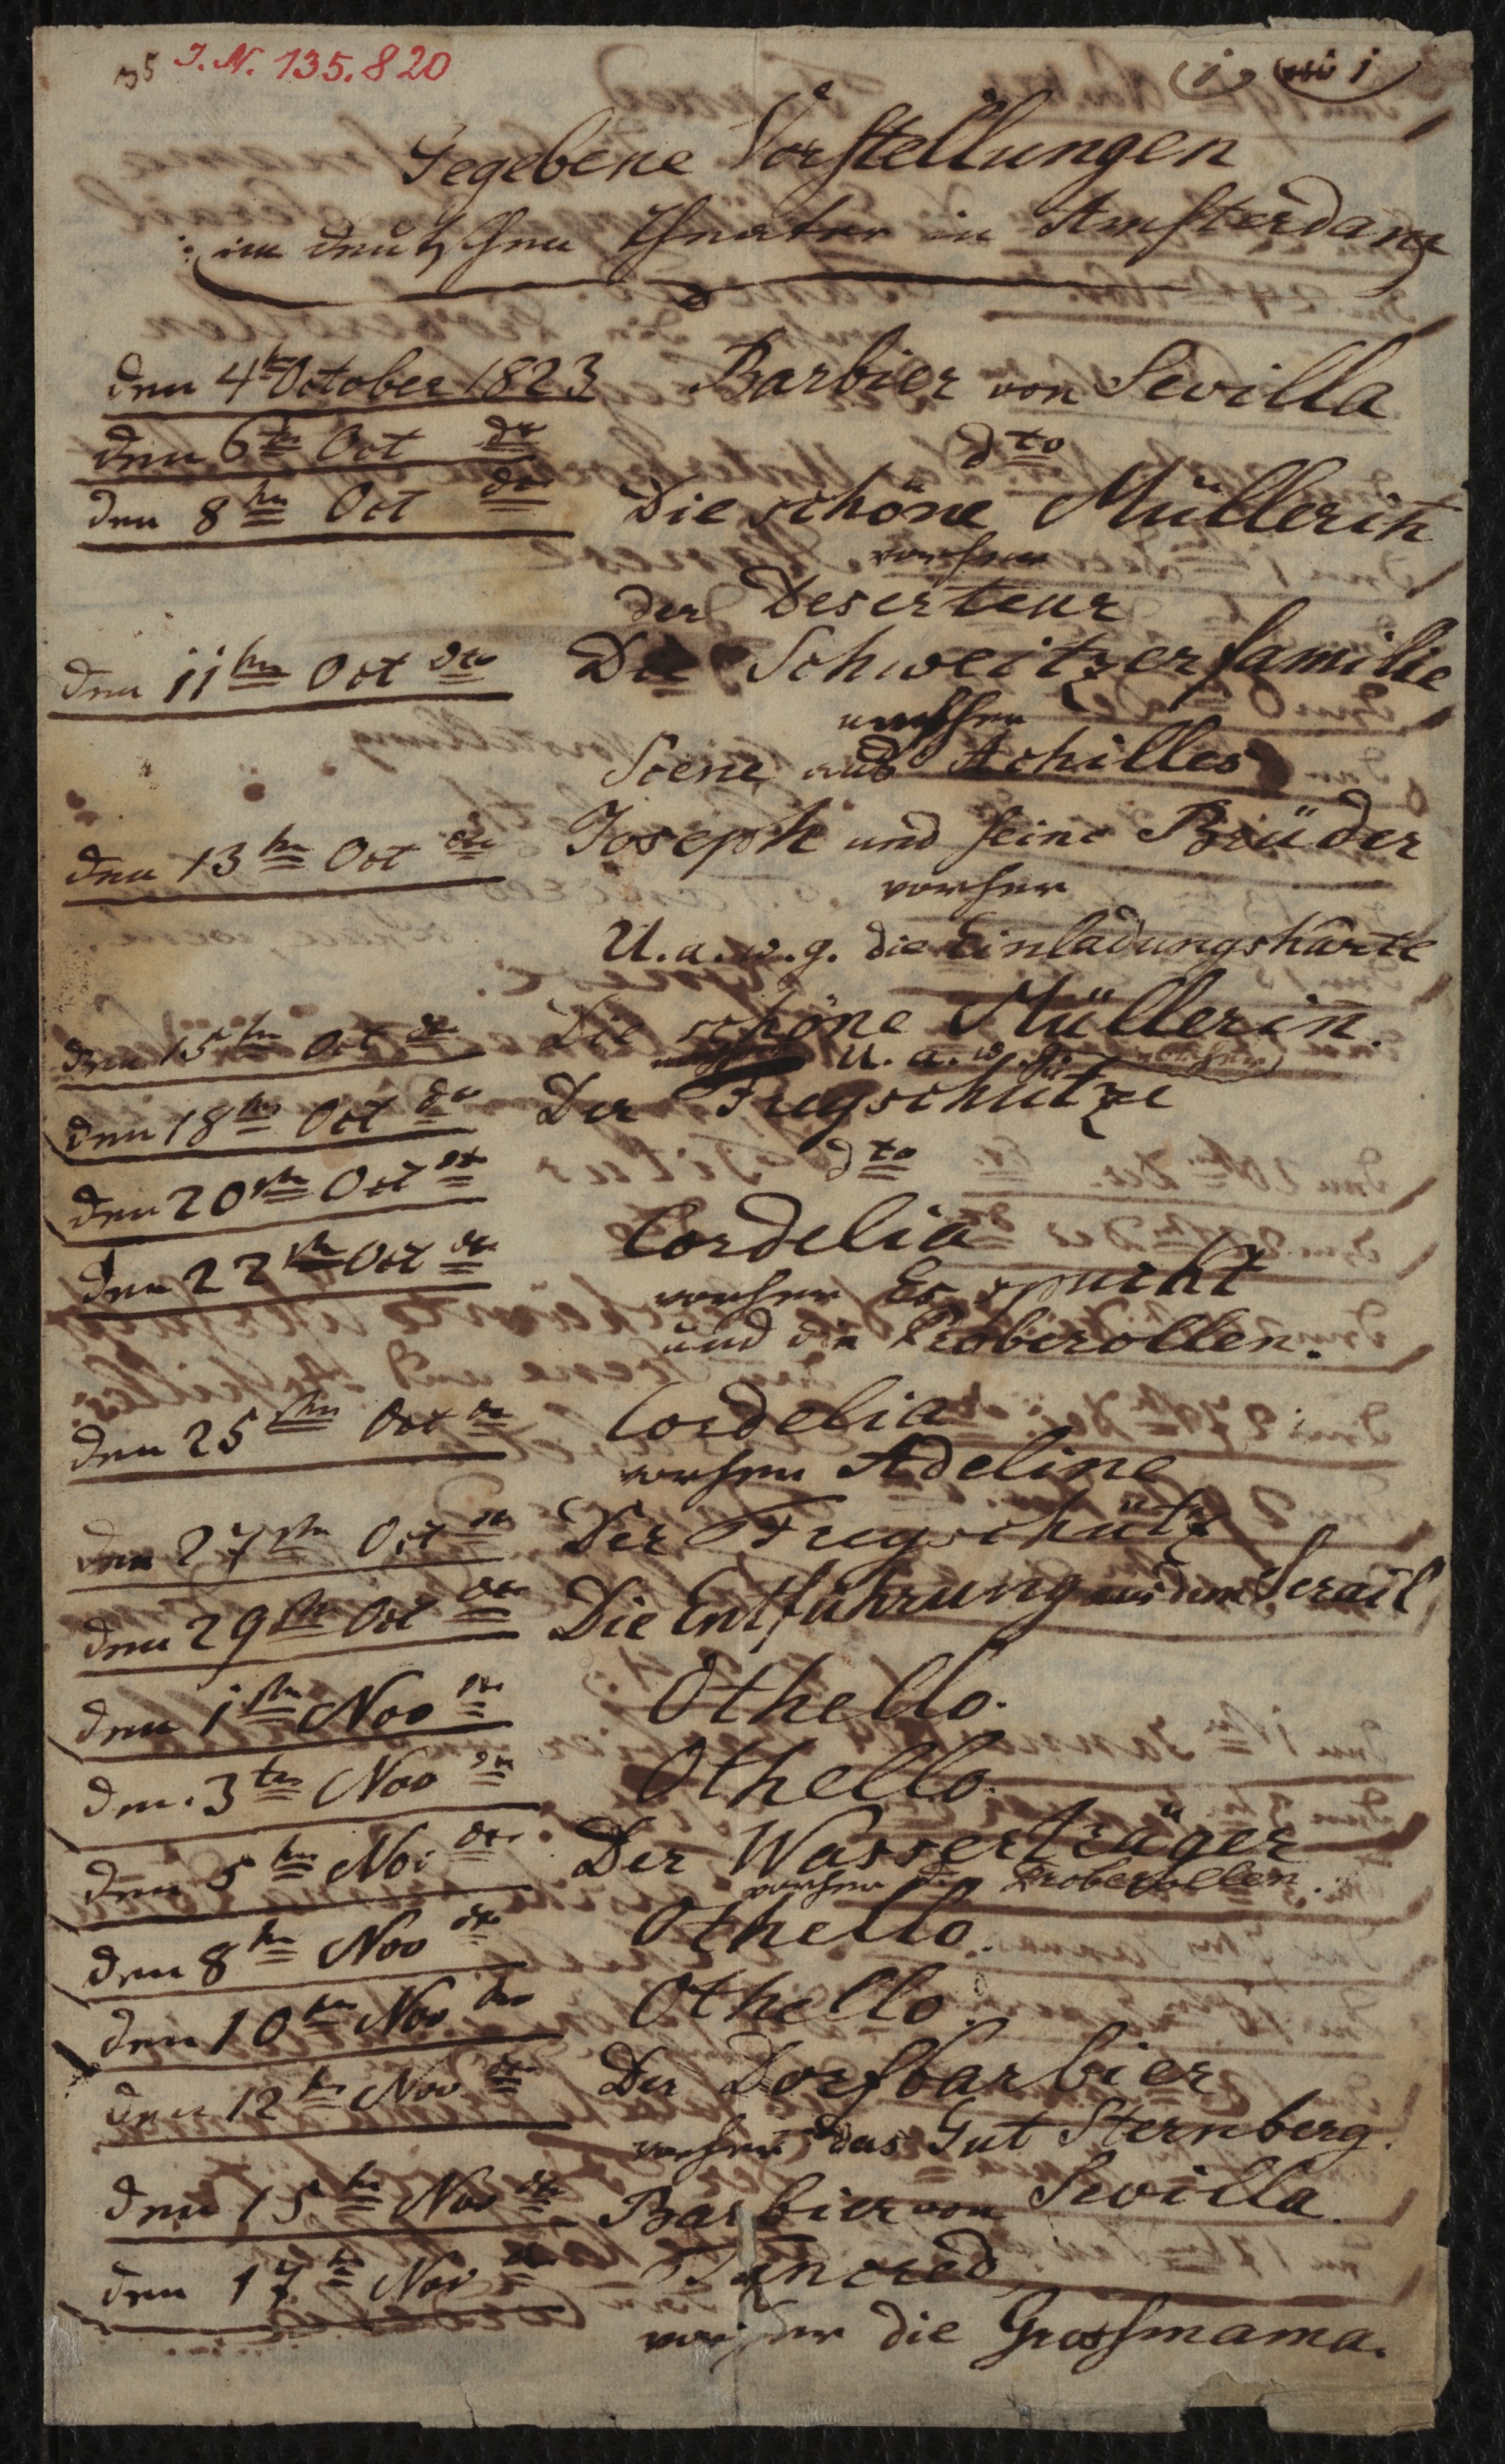 35 I. N. 135.820
Gegebene Vorstellungen
im deutschen Theater in Amsterdam
den 4ten October 1823 Barbier von Sevilla
den 6ten Oct do dto
den 8ten Oct do Die schöne Müllerin
vorher
der Deserteur
den 11ten Oct dto Die Schweitzerfamilie
vorher
Scene aus Achilles
den 13ten Oct do Joseph und seine Brüder
vorher
U. a. w. g. die Einladungskarte
den 15ten Oct do Die schöne Müllerin.
U. a. w. g. vorher
den 18ten Oct do Der Freyschütze
den 20ten Oct do dto
den 22ten Oct do Cordelia
vorher Es spuckt
und die Proberollen.
den 25ten Oct do Cordelia
vorher Adeline
den 27ten Oct do Der Freyschütz
den 29ten Oct do Die Entführung aus dem Serail
den 1ten Nov do Othello.
den. 3ten Nov do Othello.
den 5ten Nov do Der Wasserträger
vorher die Proberollen.
den 8ten Nov do Othello.
den 10ten Nov do Othello.
den 12ten Nov do Der Dorfbarbier
vorher das Gut Sternberg.
den 15ten Nov do Barbier von Sevilla.
den 17ten Nov do Tancred
vorher die Grossmama.